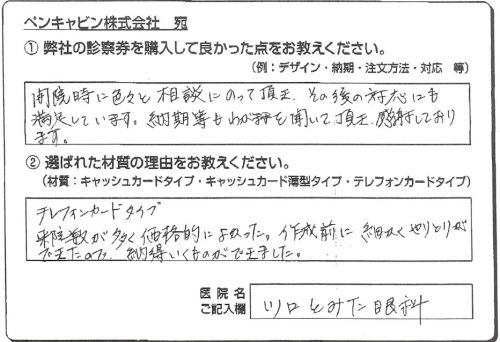 ペンキャビン株式会社 宛
① 弊社の診察券を購入して良かった点をお教えください。
（例：デザイン・納期・注文方法・対応 等）
開院時に色々と相談にのって頂き、その後の対応にも
満足しています。納期等もわが侭を聞いて頂き、感謝しており
ます。
② 選ばれた材質の理由をお教えください。
（材質：キャッシュカードタイプ・キャッシュカード薄型タイプ・テレフォンカードタイプ）
テレフォンカードタイプ
来院数が多く価格的によかった。作成前に細かくやりとりが
できたので、納得いくものができました。
医院名
ご記入欄
川口とみた眼科